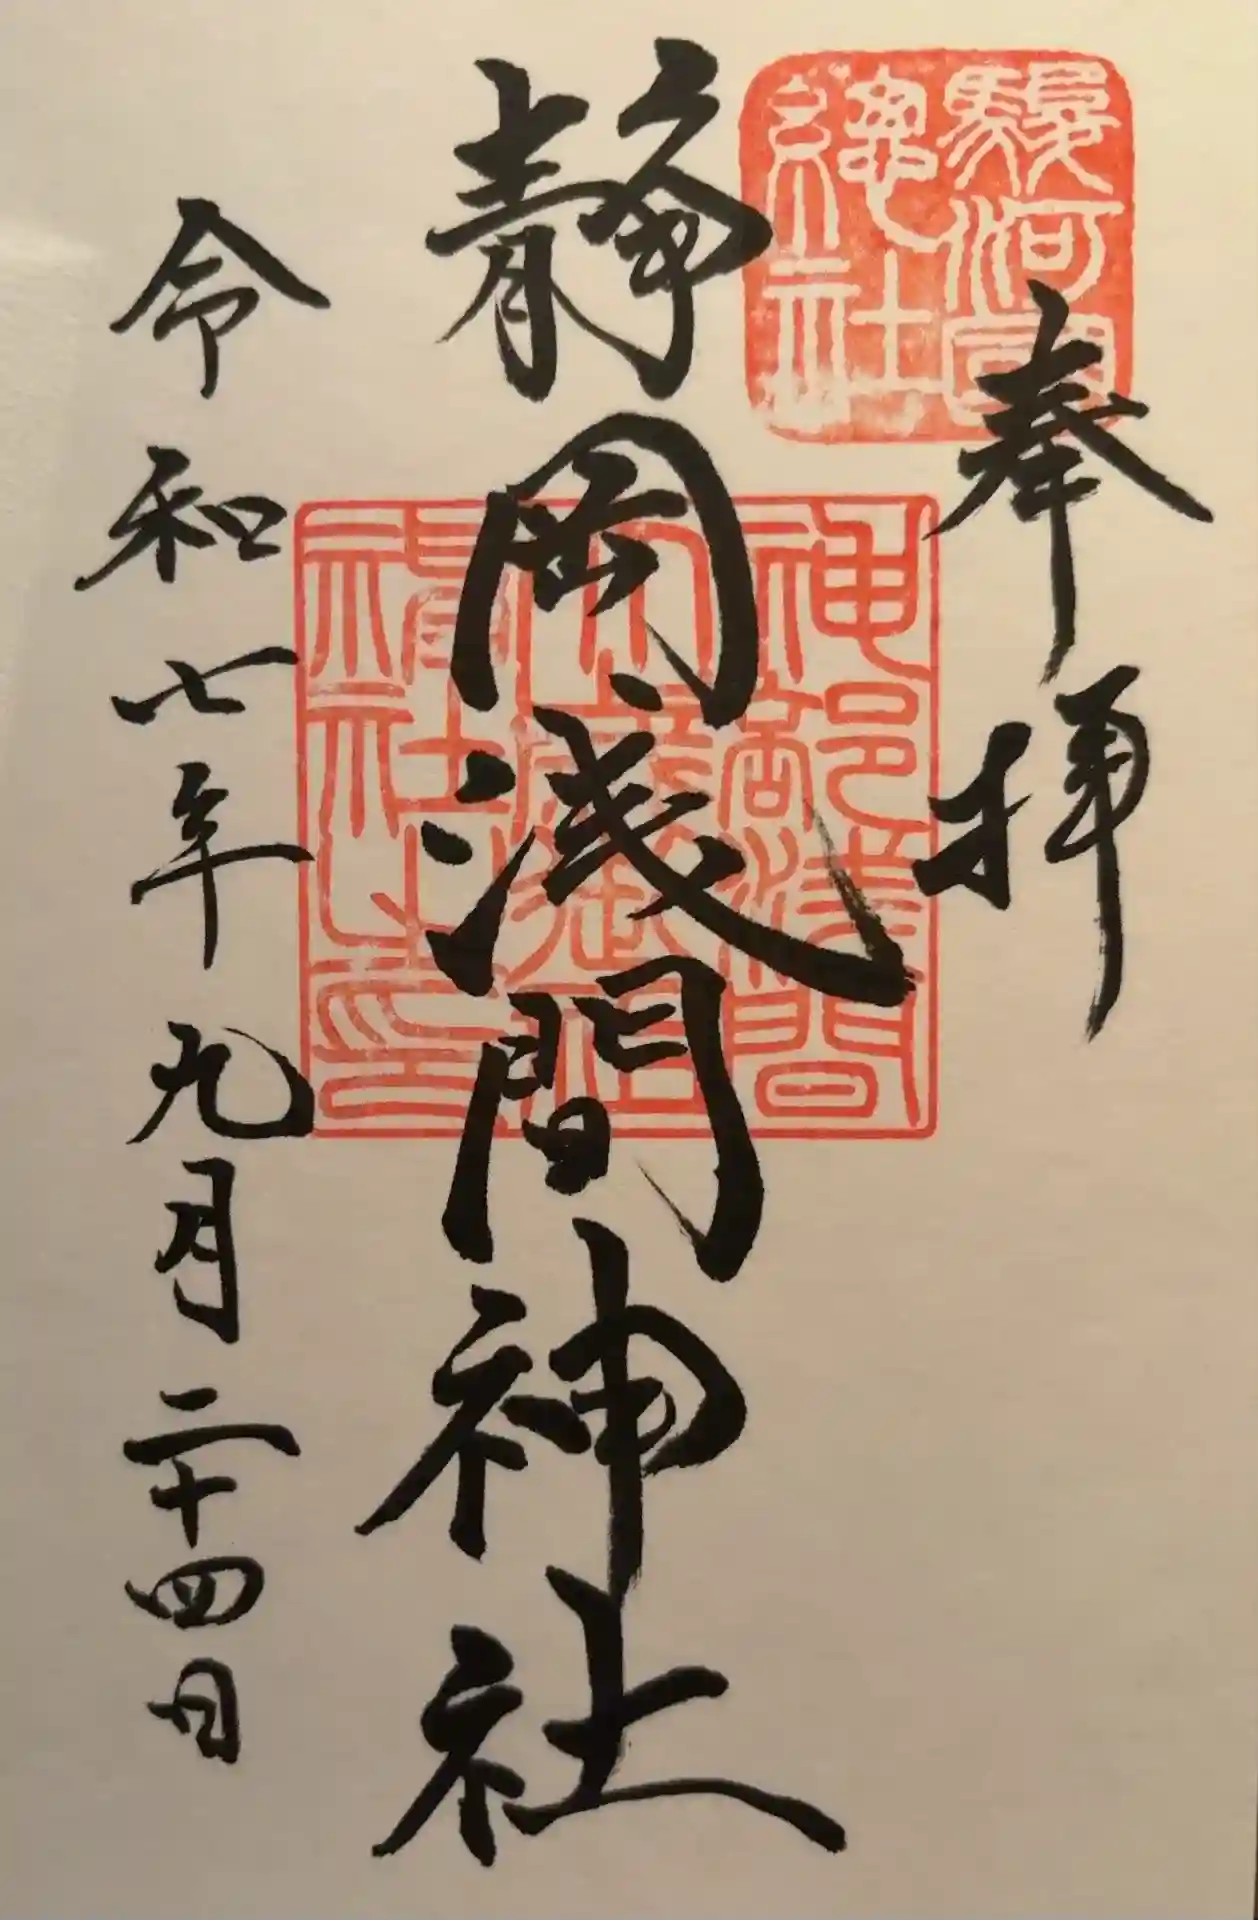 駿河國
總社
奉拝
静岡浅間神社
神部浅間
大歳御祖
神社之印
令和七年九月二十四日